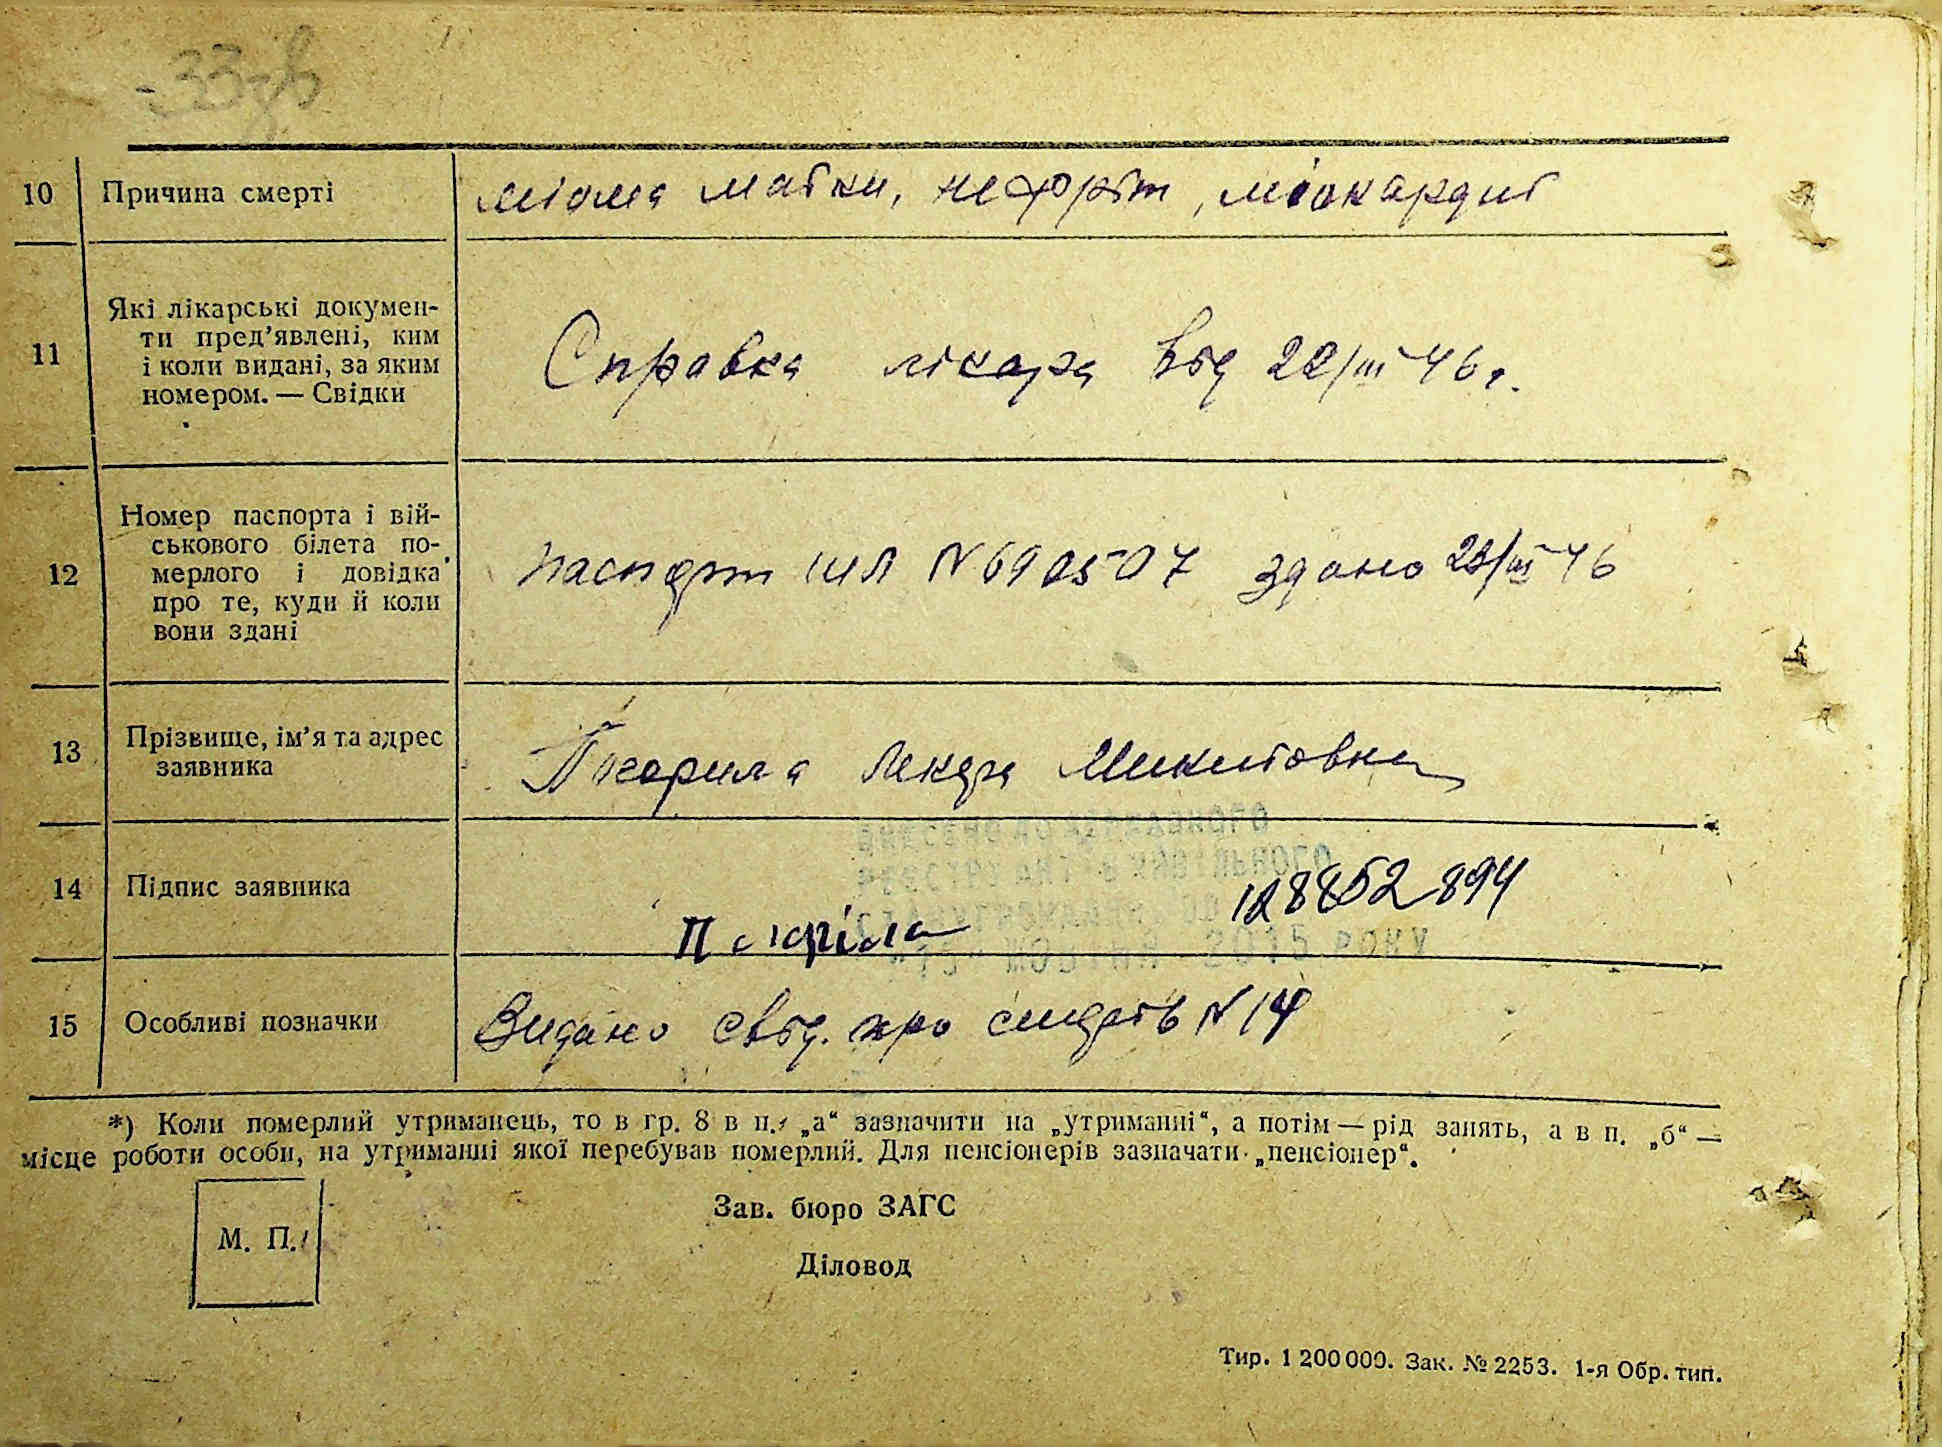 33зв
10 Причина смерті міома матки, нефріт, міокардит
11 Які лікарські докумен-
ти пред’явлені, ким
і коли видані, за яким
номером. — Свідки
Справка лікара від 22/III 46 г.
12 Номер паспорта і вій-
ськового білета по-
мерлого і довідка
про те, куди й коли
вони здані
паспорт № 690507 здано 23/III 46
13 Прізвище, ім’я та адрес
заявника
Микитовна
ВНЕСЕНО ДО ДЕРЖАВНОГО
РЕЄСТРУ АКТІВ ЦИВІЛЬНОГО
14 Підпис заявника
2015 РОКУ
15 Особливі позначки Видано свід. про смерть N 14
*) Коли померлий утриманець, то в гр. 8 в п. „а“ зазначити на „утриманні“, а потім — рід занять, а в п. „б“ —
місце роботи особи, на утриманні якої перебував померлий. Для пенсіонерів зазначати „пенсіонер“.
М. П.
Зав. бюро ЗАГС
Діловод
Тир. 1 200 000. Зак. № 2253. 1-я Обр. тип.